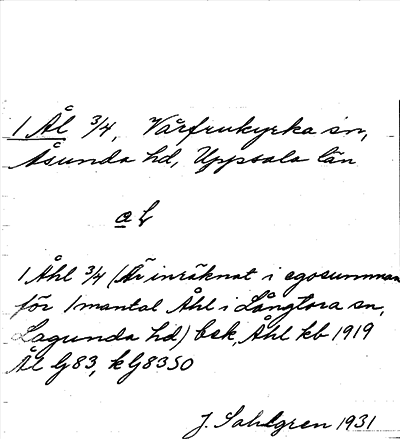 1 Ål 3/4, Vårfrukyrka sn,
Åsunda hd, Uppsala län
1 Åhl 3/4 (Är inräknat i egosumman
för 1 mantal Åhl i Långtora sn,
Lagunda hd) bsk, Åhl kb 1919
Ål G83, kG83SO
J. Sahlgren 1931